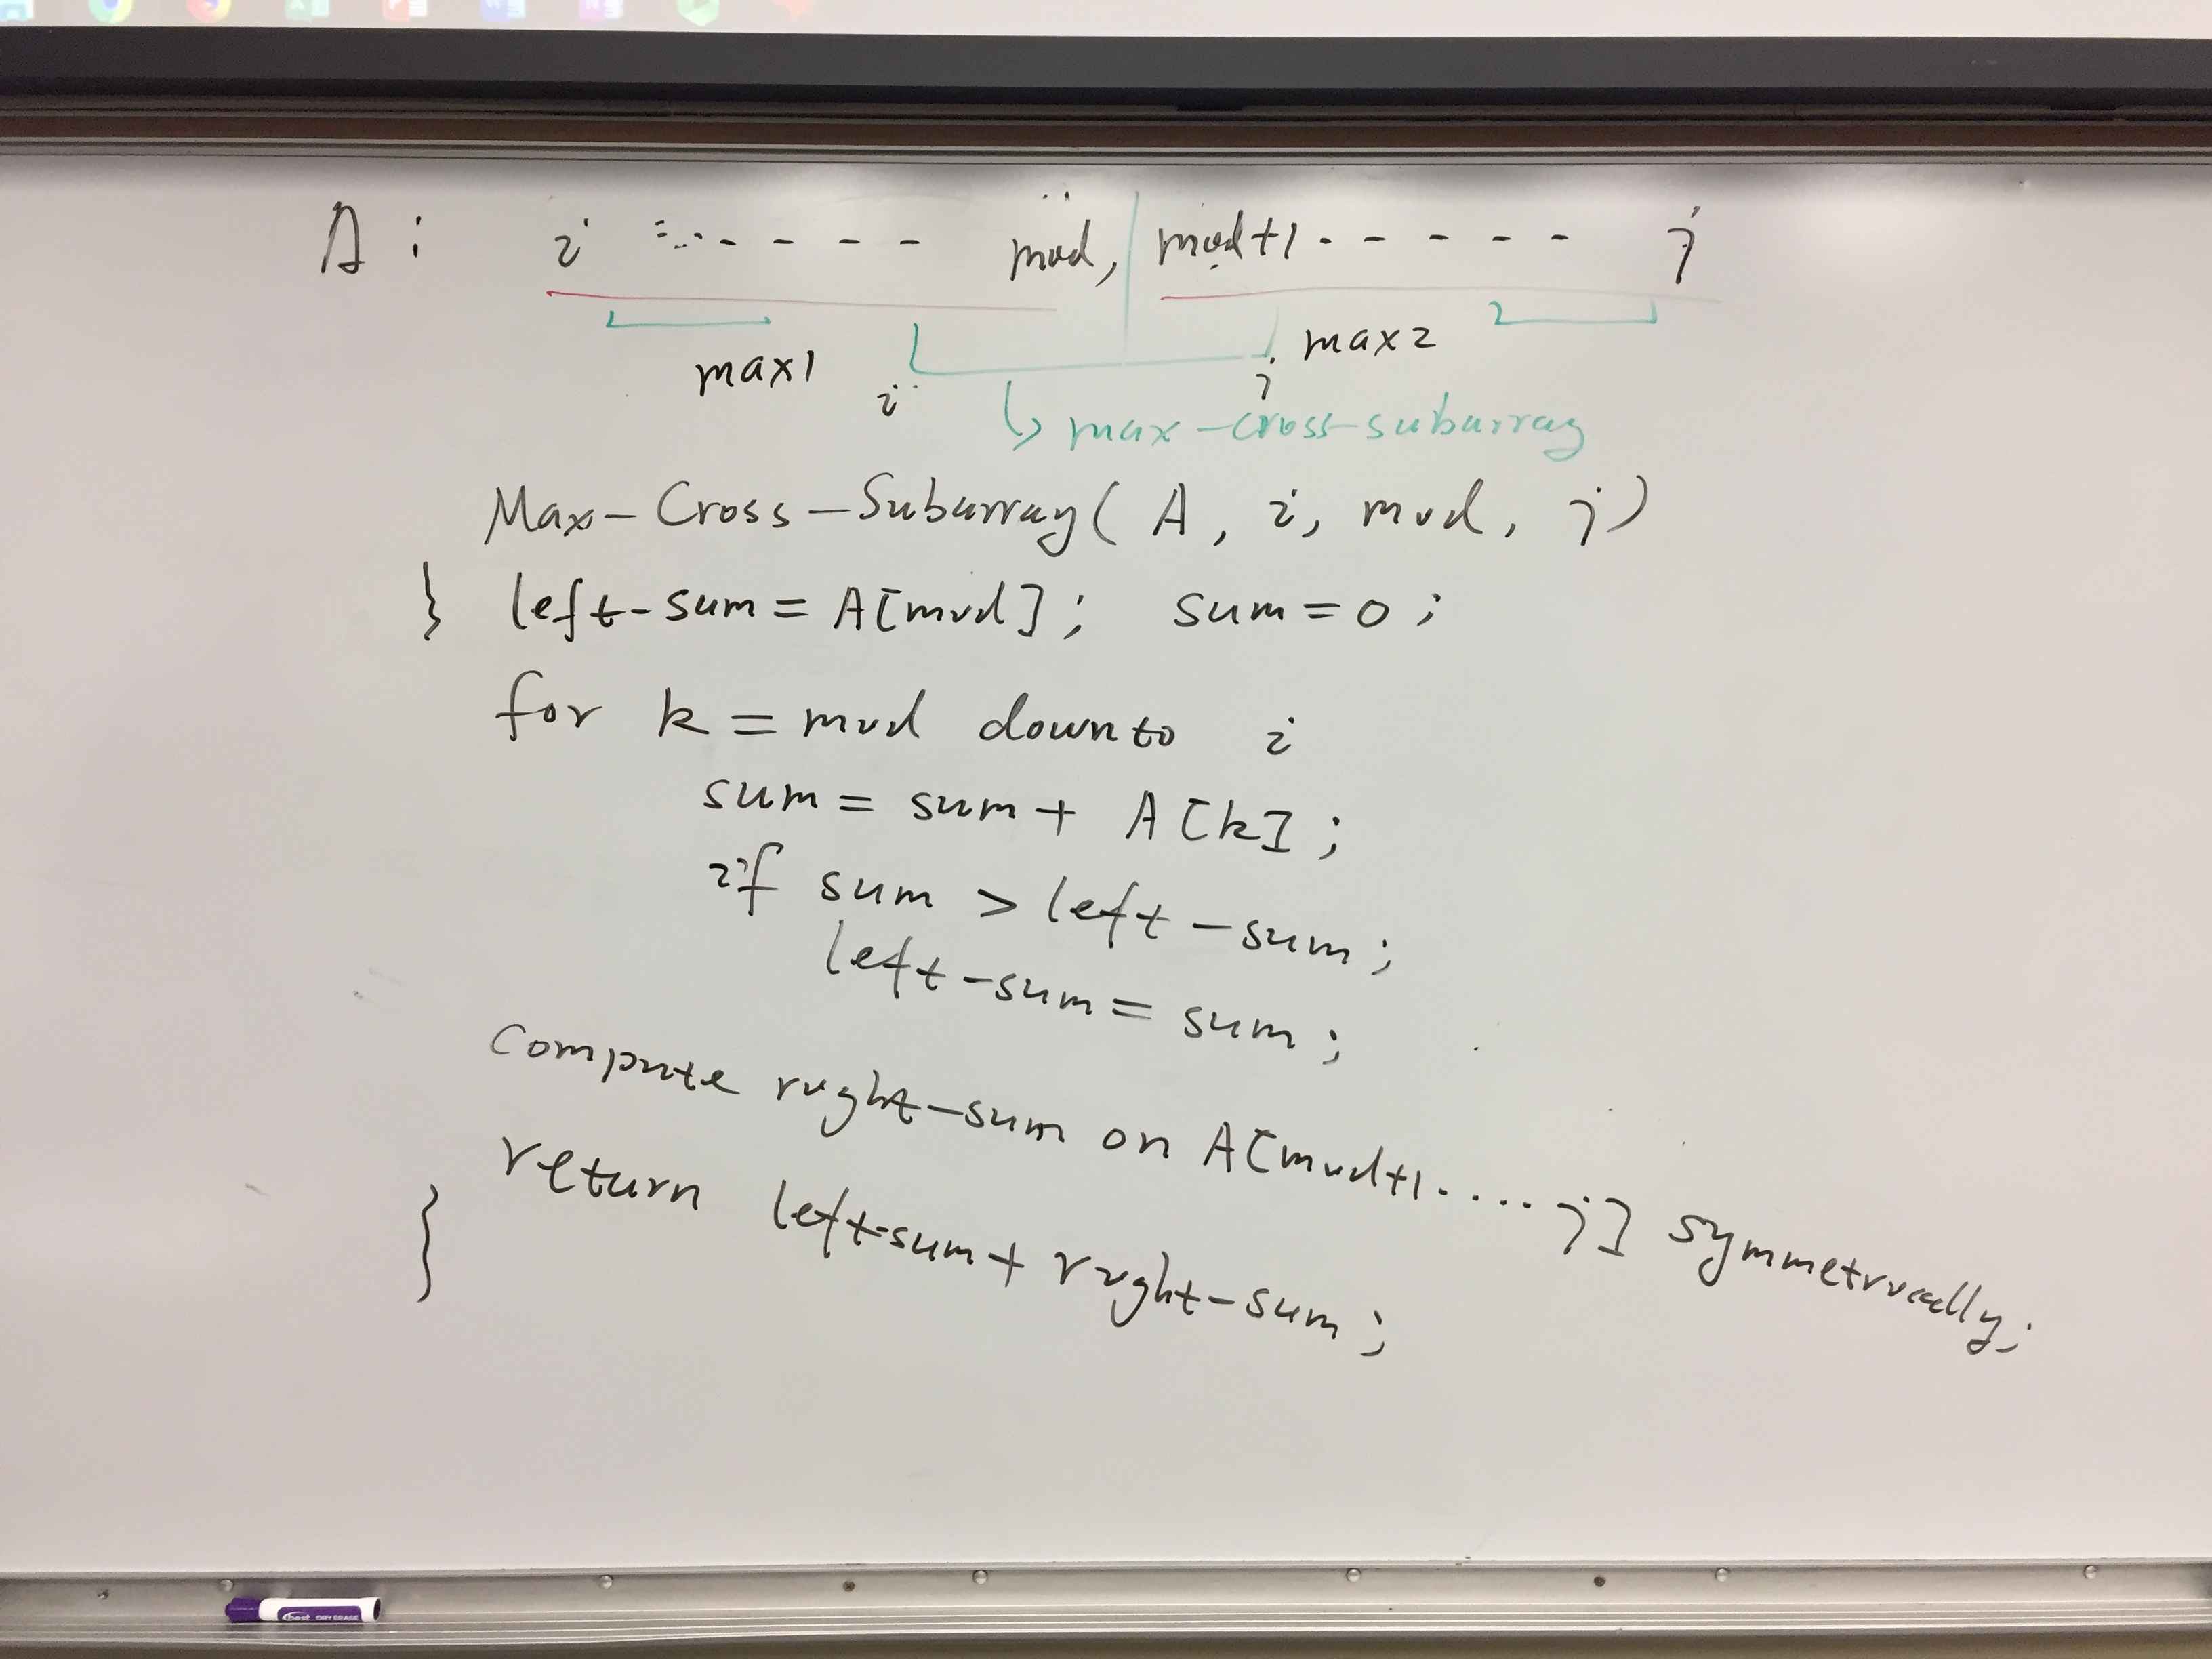 A : i - - - - - - mid, mid+1 - - - - - j
max1 i j max2
max-cross-subarray
Max-Cross-Subarray( A, i, mid, j)
} left-sum = A[mid]; sum = 0 ;
for k = mid downto i
sum = sum + A[k] ;
if sum > left-sum;
left-sum = sum ;
compute right-sum on A[mid+1 .... j] symmetrically;
} return left-sum + right-sum ;
best DRY ERASE